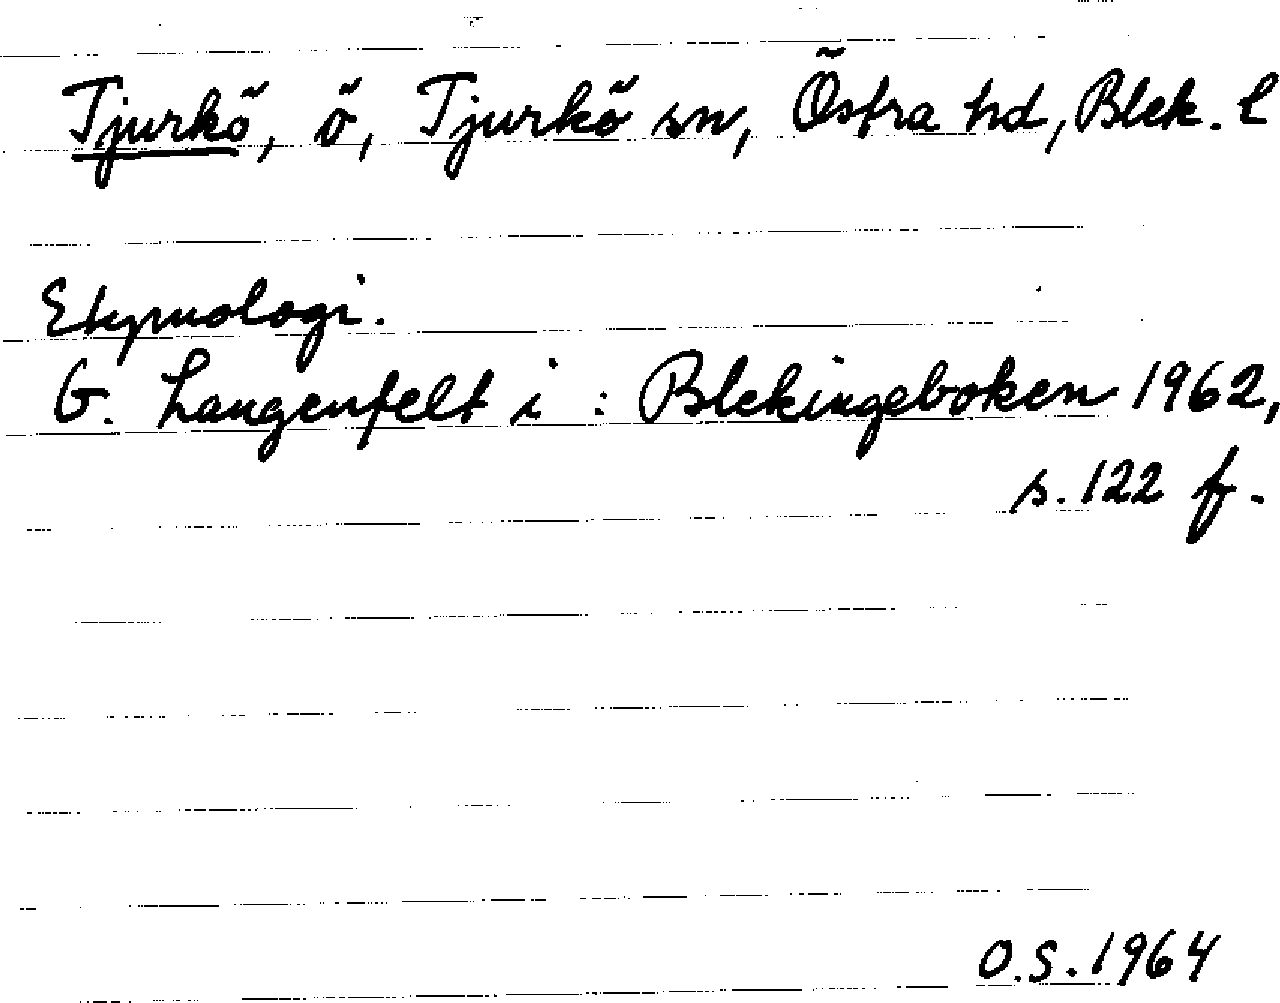 Tjurkö, ö, Tjurkö sn, Östra hd, Blek. l
Etymologi.
G. Langenfelt i : Blekingeboken 1962,
s. 122 f.
O.S. 1964